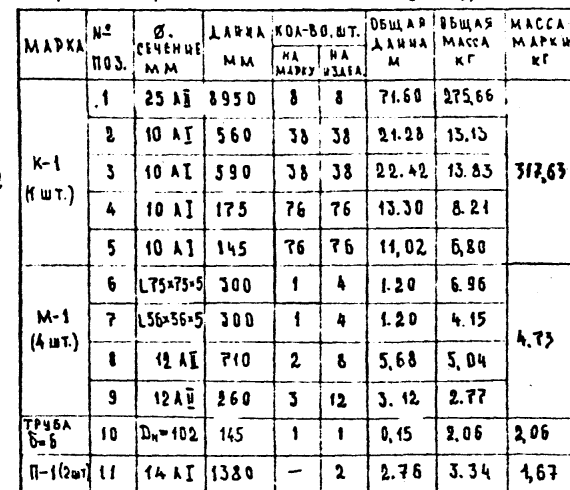 МАРКА № ПОЗ. Ø. СЕЧЕНИЕ ММ ДЛИНА ММ КОЛ-ВО, ШТ. НА МАРКУ НА ИЗДЕЛ. ОБЩАЯ ДЛИНА М ОБЩАЯ МАССА КГ МАССА МАРКИ КГ
К-1 (1 шт.) 317,63
1 25 АII 8950 8 8 71.60 275,66
2 10 АI 560 38 38 21.28 13.13
3 10 АI 590 38 38 22.42 13.83
4 10 АI 175 76 76 13.30 8.21
5 10 АI 145 76 76 11,02 6,80
М-1 (4 шт.) 4.73
6 L75×75×5 300 1 4 1.20 6.96
7 L56×36×5 300 1 4 1.20 4.15
8 12 АI 710 2 8 5,68 5,04
9 12 АII 260 3 12 3.12 2.77
ТРУБА δ=6 10 Dн=102 145 1 1 0,15 2,06 2,06
П-1(2шт) 11 14 АI 1380 — 2 2.76 3.34 1,67